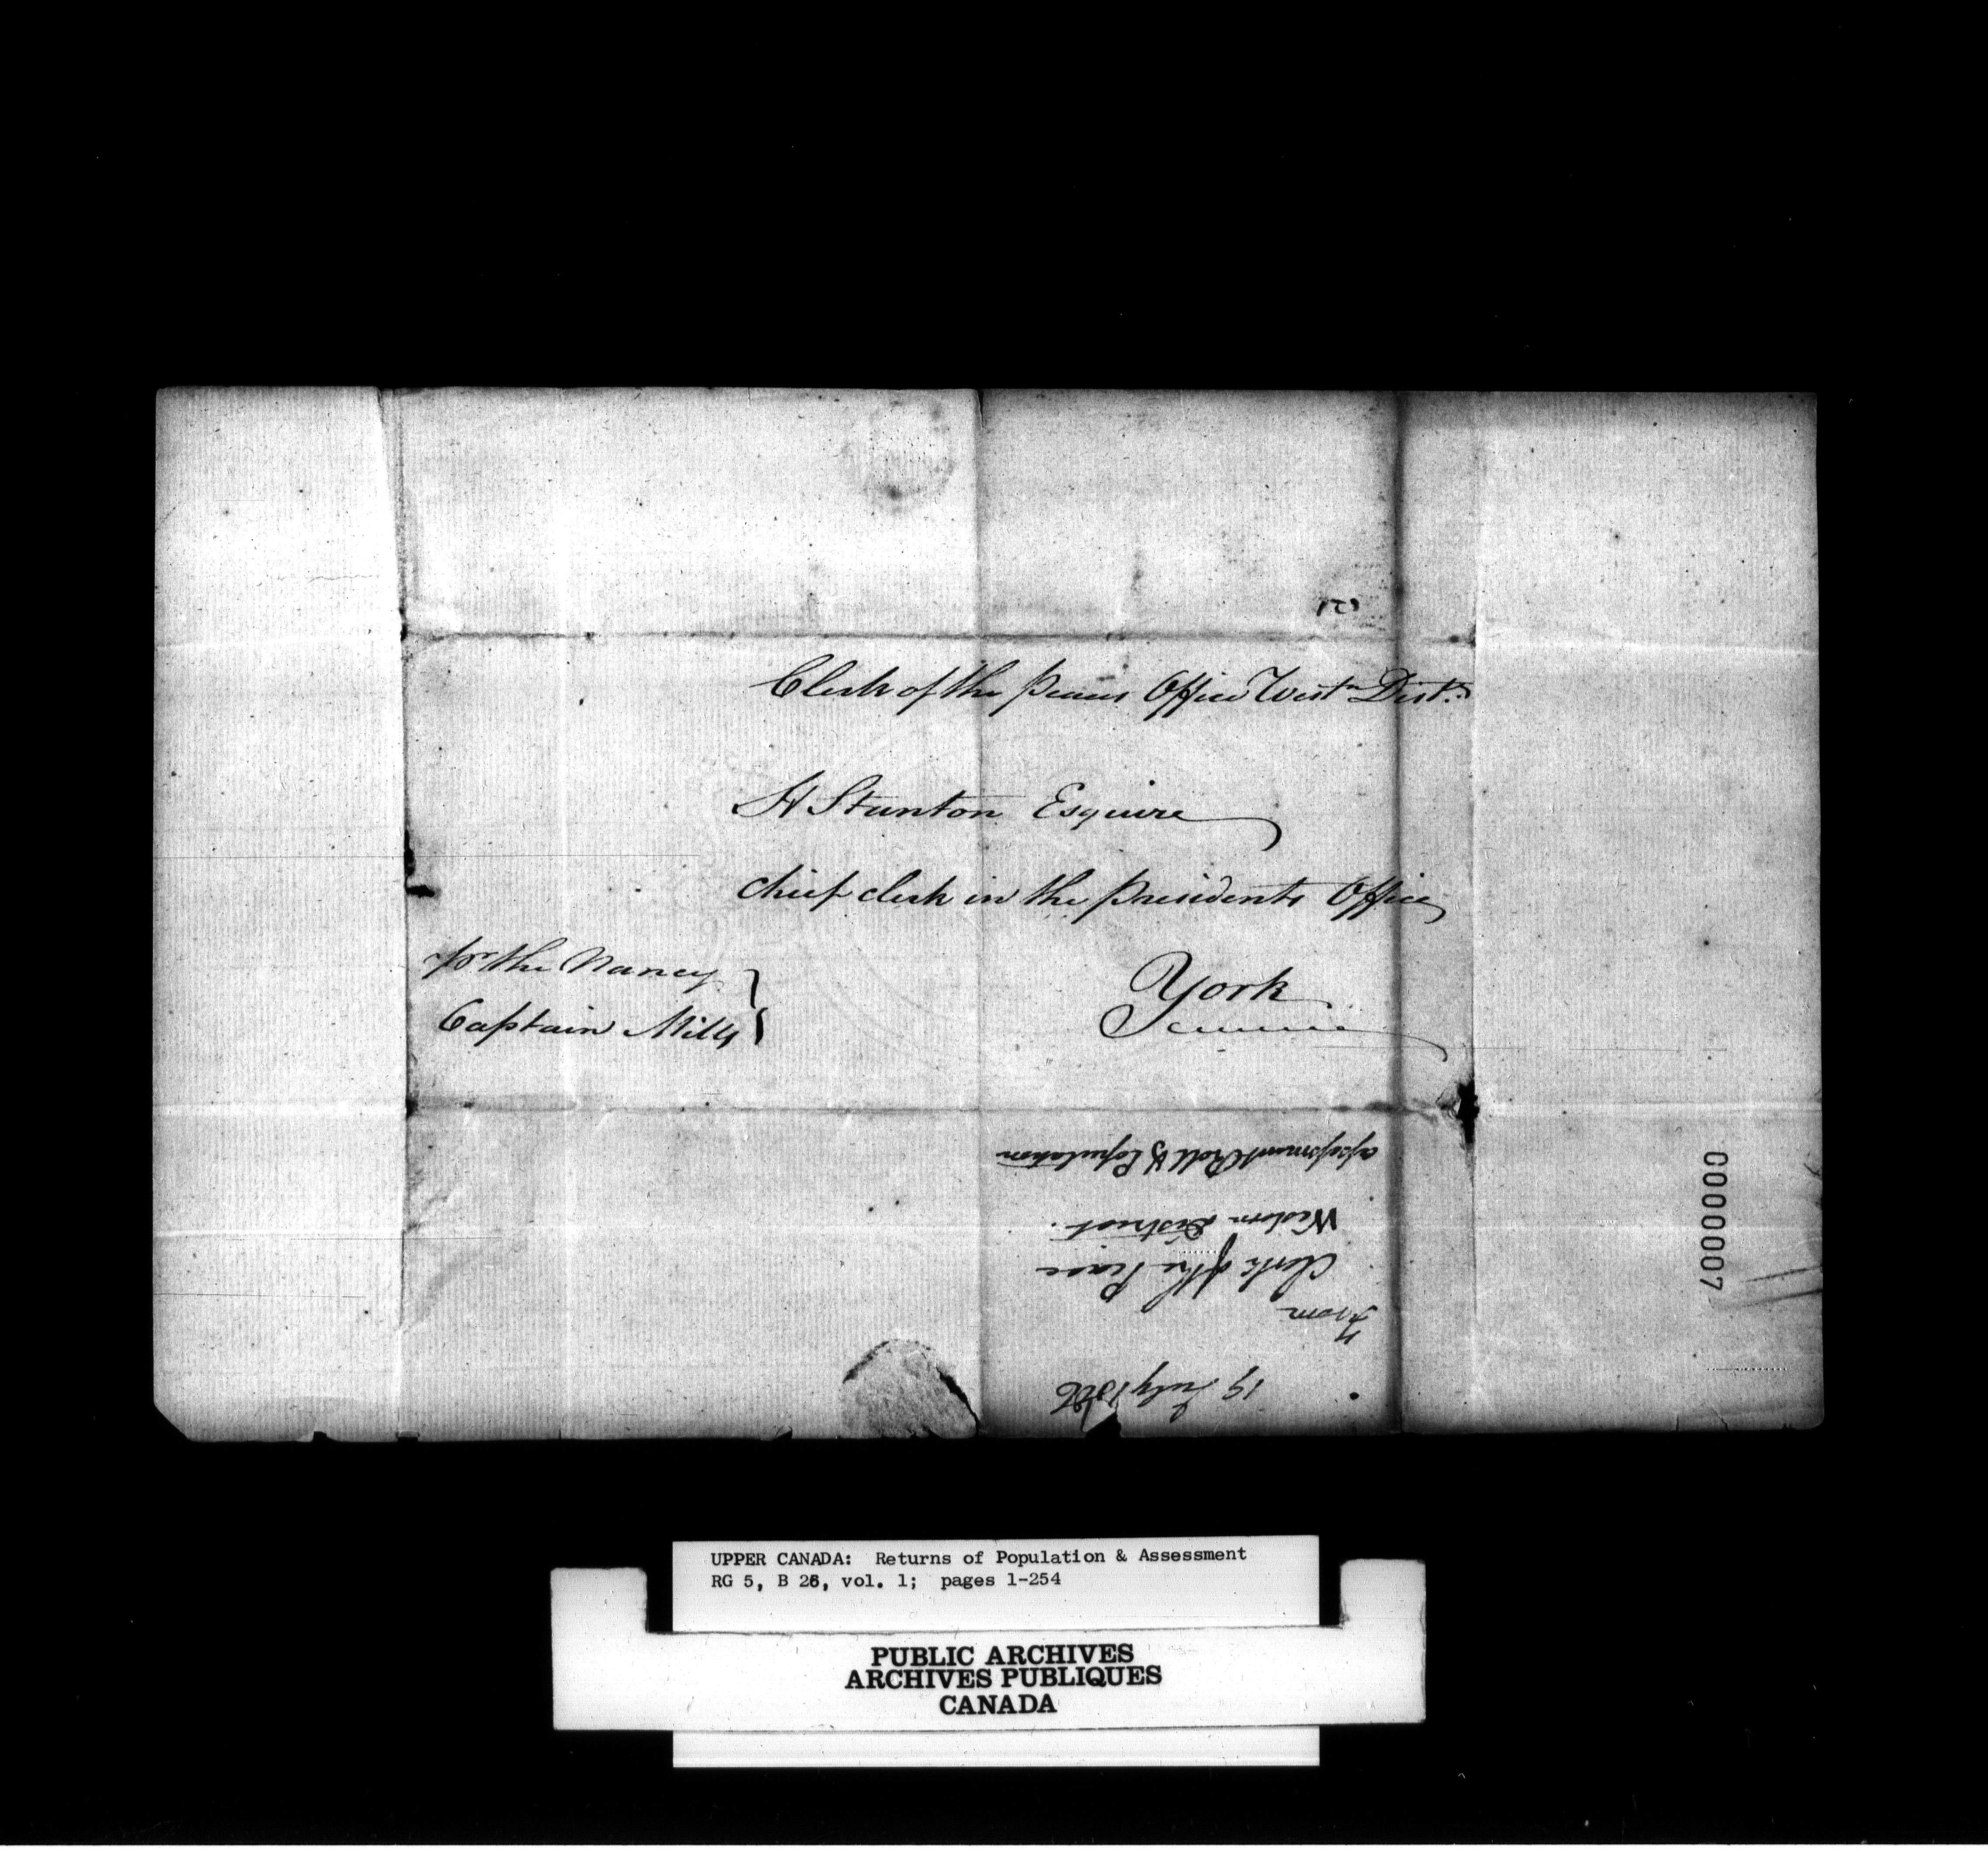 Clerk of the Peaces Office Westn Distt.
H Stanton Esquire
chief clerk in the Presidents Office
York
pr the Nancy
Captain Mills
19 July 1806
From
Clerk of the Peace
Western District.
assessment Roll & Population
0000007
UPPER CANADA: Returns of Population & Assessment
RG 5, B 26, vol. 1; pages 1-254
PUBLIC ARCHIVES
ARCHIVES PUBLIQUES
CANADA